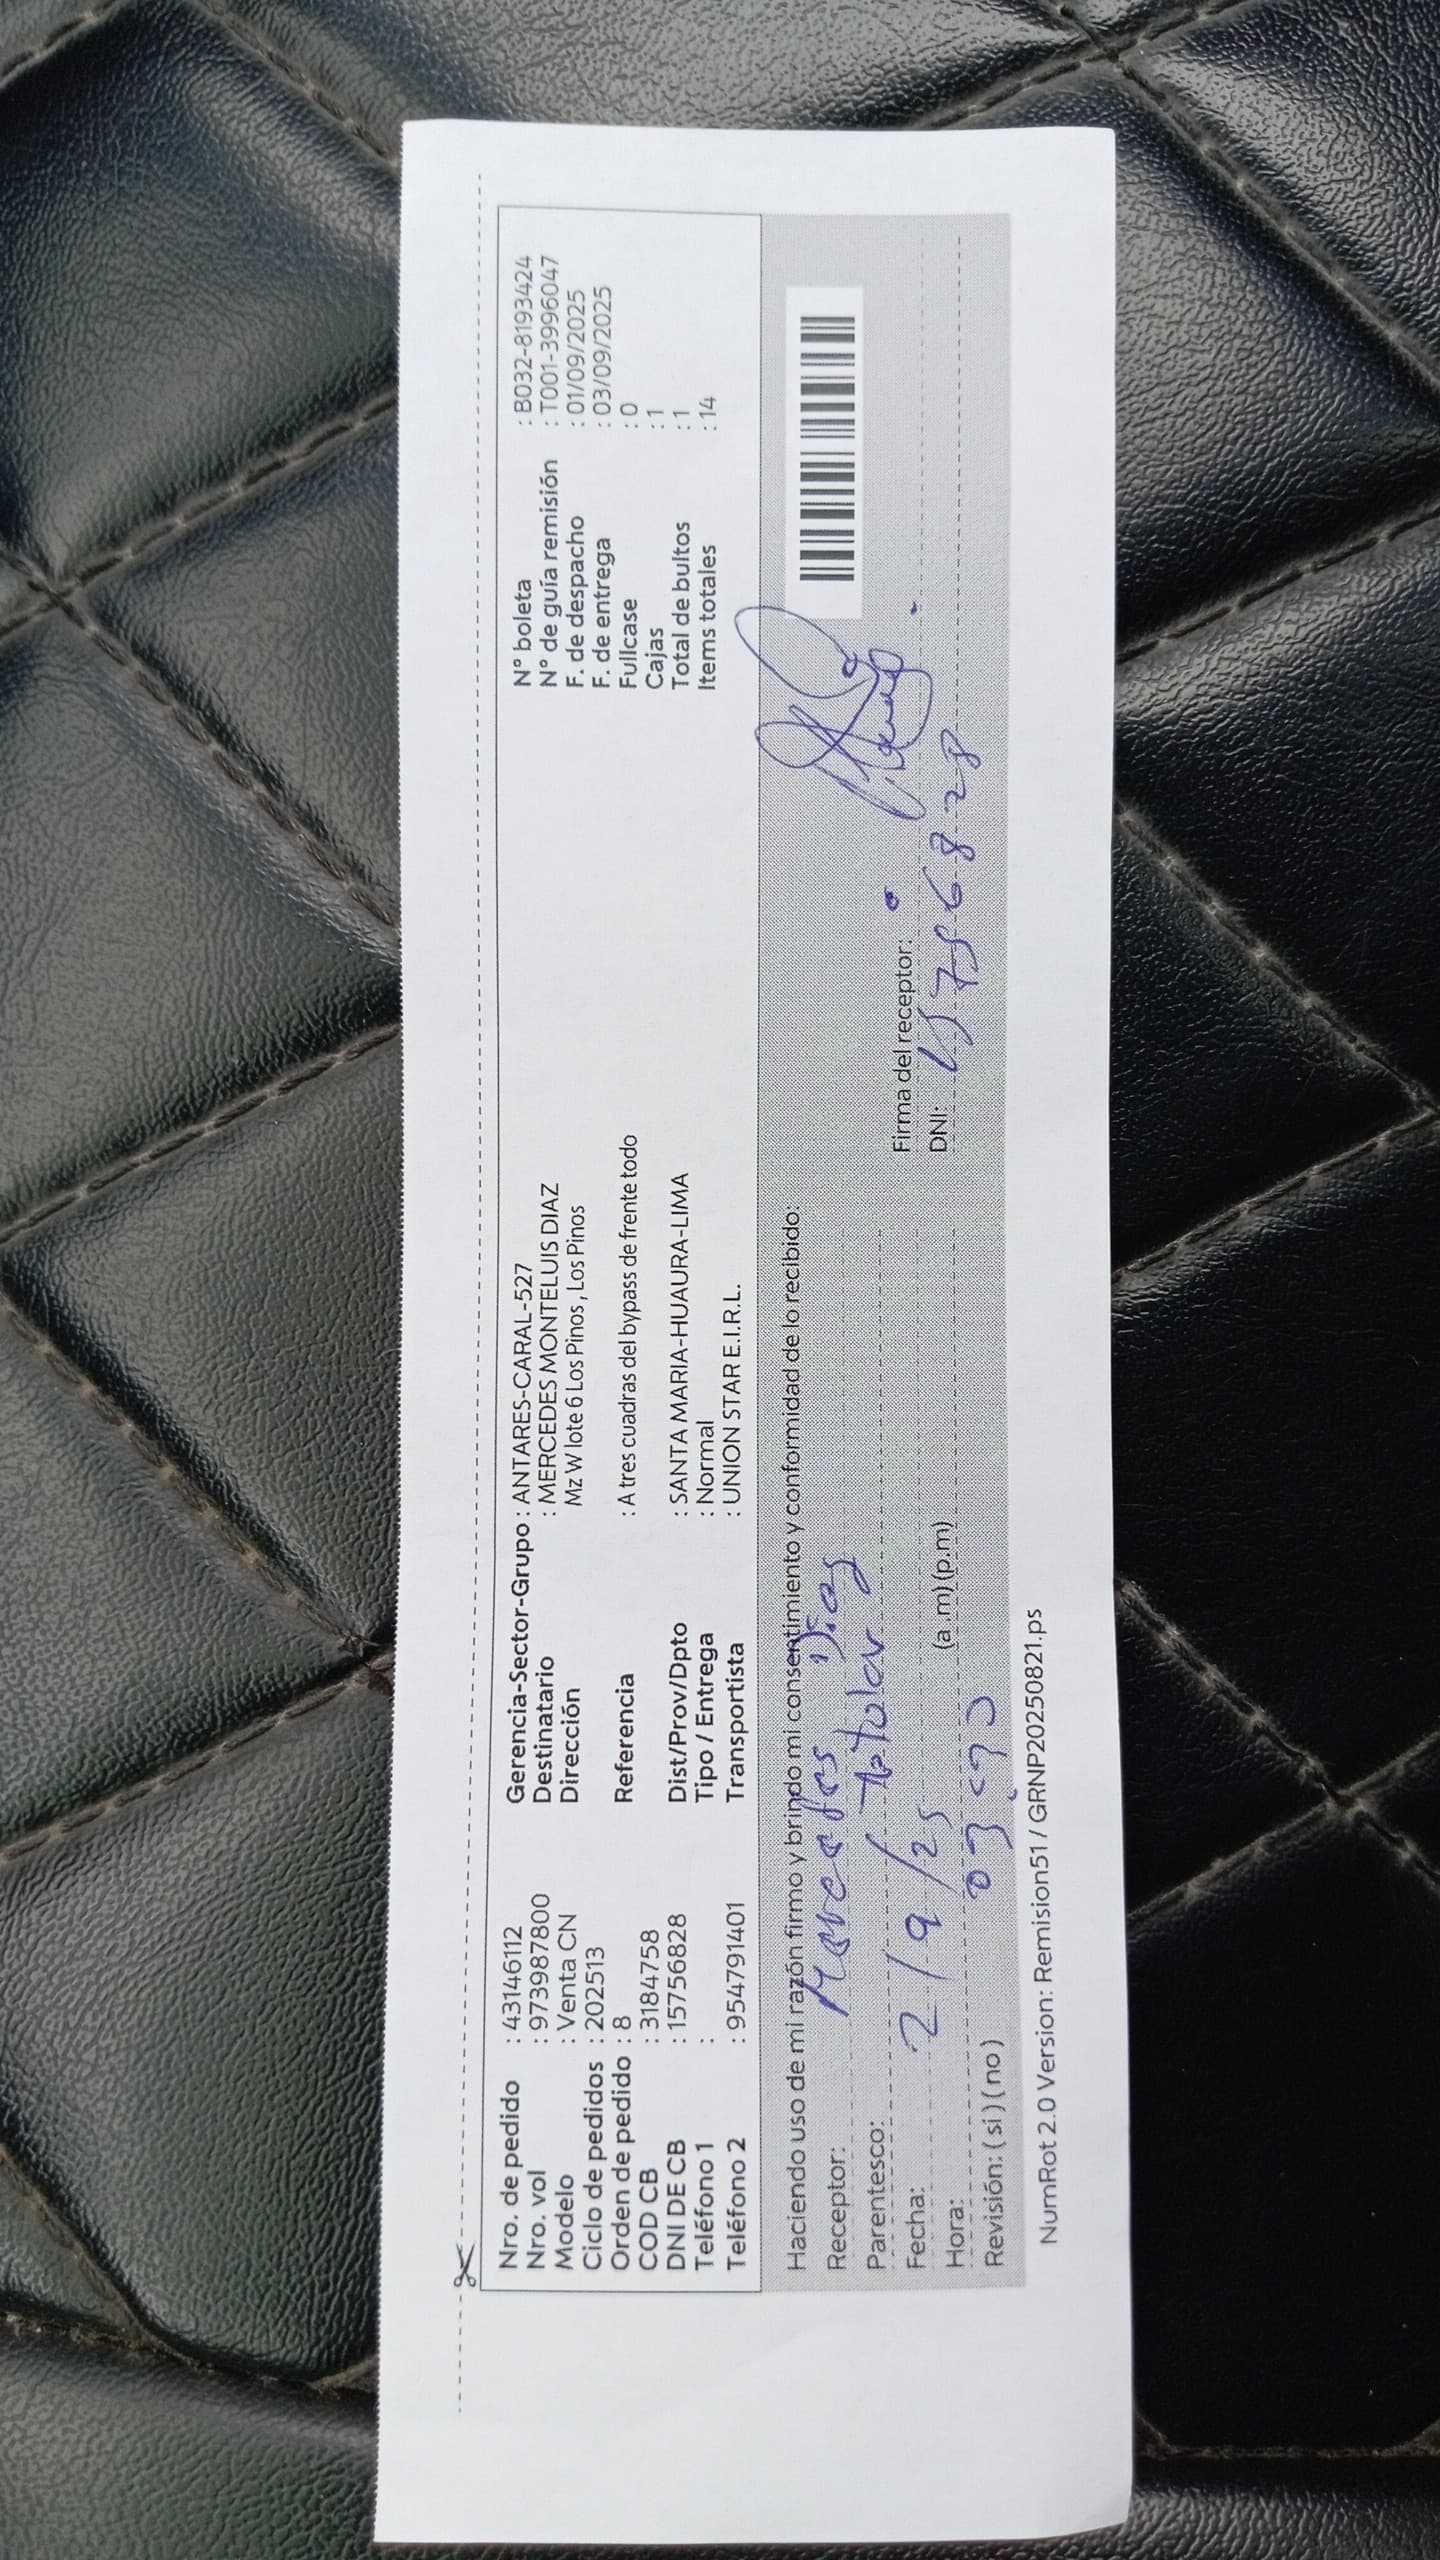 Nro. de pedido : 43146112
Nro. vol : 973987800
Modelo : Venta CN
Ciclo de pedidos : 202513
Orden de pedido : 8
COD CB : 3184758
DNI DE CB : 15756828
Teléfono 1 :
Teléfono 2 : 954791401
Gerencia-Sector-Grupo : ANTARES-CARAL-527
Destinatario : MERCEDES MONTELUIS DIAZ
Dirección Mz W lote 6 Los Pinos , Los Pinos
Referencia : A tres cuadras del bypass de frente todo
Dist/Prov/Dpto : SANTA MARIA-HUAURA-LIMA
Tipo / Entrega : Normal
Transportista : UNION STAR E.I.R.L.
N° boleta : B032-8193424
N° de guía remisión : T001-3996047
F. de despacho : 01/09/2025
F. de entrega : 03/09/2025
Fullcase : 0
Cajas : 1
Total de bultos : 1
Items totales : 14
Haciendo uso de mi razón firmo y brindo mi consentimiento y conformidad de lo recibido:
Receptor: Mercedes Diaz
Parentesco: titular
Fecha: 2/9/25
Hora: (a.m) (p.m)
Revisión: ( si ) ( no )
Firma del receptor:
DNI: 15756828
NumRot 2.0 Version: Remision51 / GRNP20250821.ps